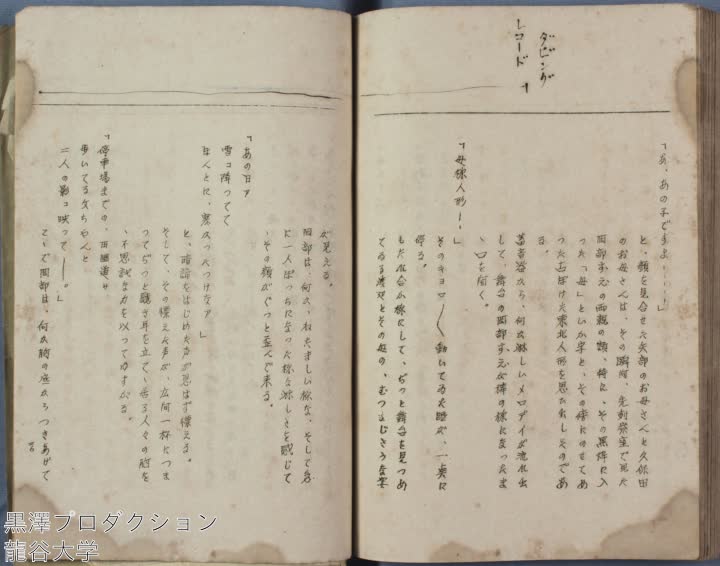 ダビング
レコード
「あ、あの子ですよ……！」
と、顔を見合せた矢部のお母さんと久保田
のお母さんは、その瞬間、先刻寮室で見た
岡部すえの両親の顔、特に、その黒枠に入
った「母」といふ字と、その横にのせてあ
った古ぼけた東北人形を思ひ出したのであ
る。
蓄音器から、何か淋しいメロディが流れ出
して、舞台の岡部すえが棒の様になったま
ゝ口を開く。
「母様人形——」
そのキョロ〳〵動いてゐた瞳が、一点に
停る。
もたれ合ふ様にして、ぢっと舞台を見つめ
てゐる渡辺とその母の、むつまじさうな姿
が見える。
岡部は、何か、ねたましい様な、そして急
に一人ぼっちになった様な淋しさを感じて
、その顔がぐっと歪んで来る。
「あの日ァ
雪コ降ってて
ほんとに、寒かったっけなァ」
と、暗誦をはじめた声が思はず慄える。
そして、その慄えた声が、広間一杯につま
ってぢっと聴き耳を立てゝ居る人々の胸を
、不思議な力を以ってゆすがる。
「停車場までの、田圃道を
歩いてる父ちゃんと
二人の影コ映って——。」
こゝで岡部は、何か胸の底からつきあげて
黒澤プロダクション
龍谷大学